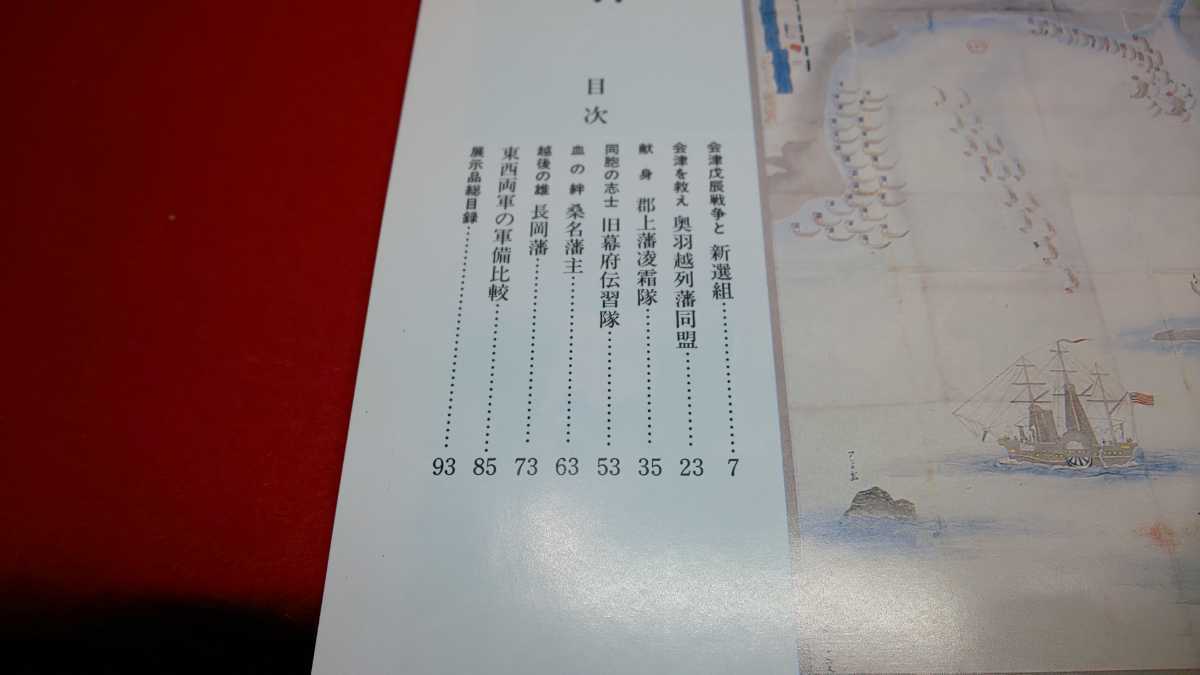 目次
会津戊辰戦争と 新選組……………………7
会津を救え 奥羽越列藩同盟……………………23
献身 郡上藩凌霜隊……………………35
同胞の志士 旧幕府伝習隊……………………53
血の絆 桑名藩主……………………63
越後の雄 長岡藩……………………73
東西両軍の軍備比較……………………85
展示品総目録……………………93